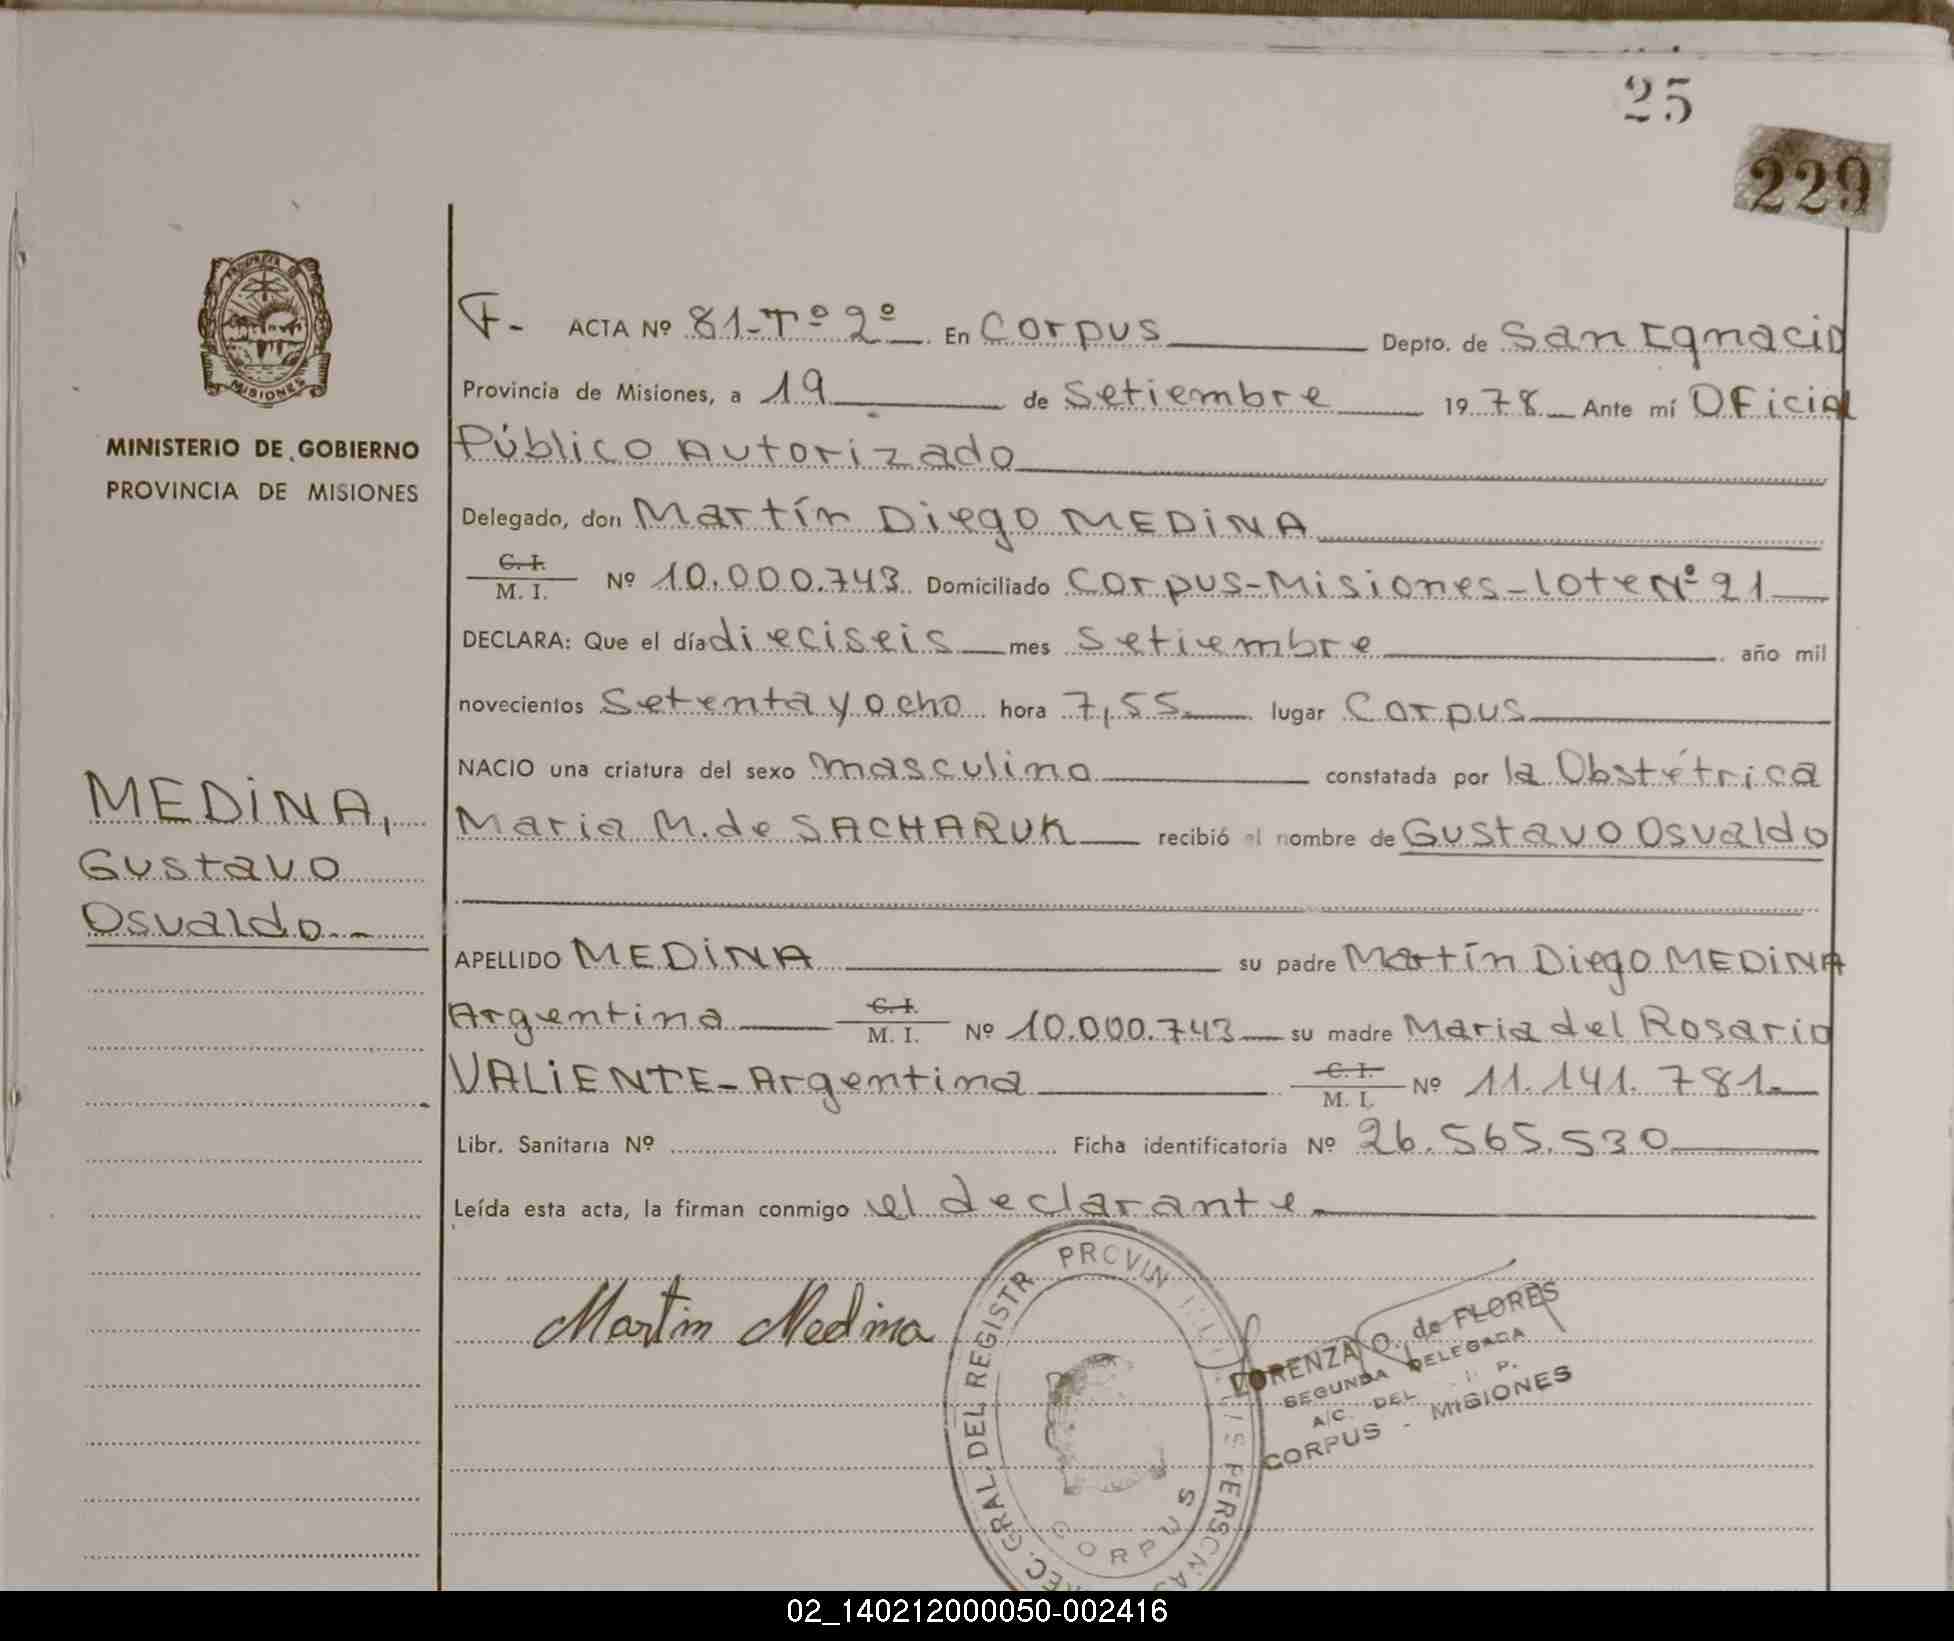 25
229
PROVINCIA
MISIONES
MINISTERIO DE GOBIERNO
PROVINCIA DE MISIONES
MEDINA,
Gustavo
Osvaldo.-
F- ACTA Nº 81-Tº 2º En Corpus Depto. de San Ignacio
Provincia de Misiones, a 19 de Setiembre 1978 Ante mí Oficial
Público Autorizado
Delegado, don Martín Diego MEDINA
C. I.
M. I. Nº 10.000.743 Domiciliado Corpus-Misiones-lote Nº 21
DECLARA: Que el día dieciseis mes Setiembre año mil
novecientos Setenta y ocho hora 7,55 lugar Corpus
NACIO una criatura del sexo masculino constatada por la Obstétrica
Maria M. de SACHARUK recibió el nombre de Gustavo Osvaldo
APELLIDO MEDINA su padre Martín Diego MEDINA
Argentina C. I. M. I. Nº 10.000.743 su madre Maria del Rosario
VALIENTE-Argentina C. I. M. I. Nº 11.141.781.
Libr. Sanitaria Nº Ficha identificatoria Nº 26.565.530
Leída esta acta, la firman conmigo el declarante
Martin Medina
GRAL. DEL REGISTR PROVIN PERSONAS
CORPUS
LORENZA O. de FLORES
SEGUNDA DELEGADA
A/C DEL P.
CORPUS - MISIONES
02_140212000050-002416